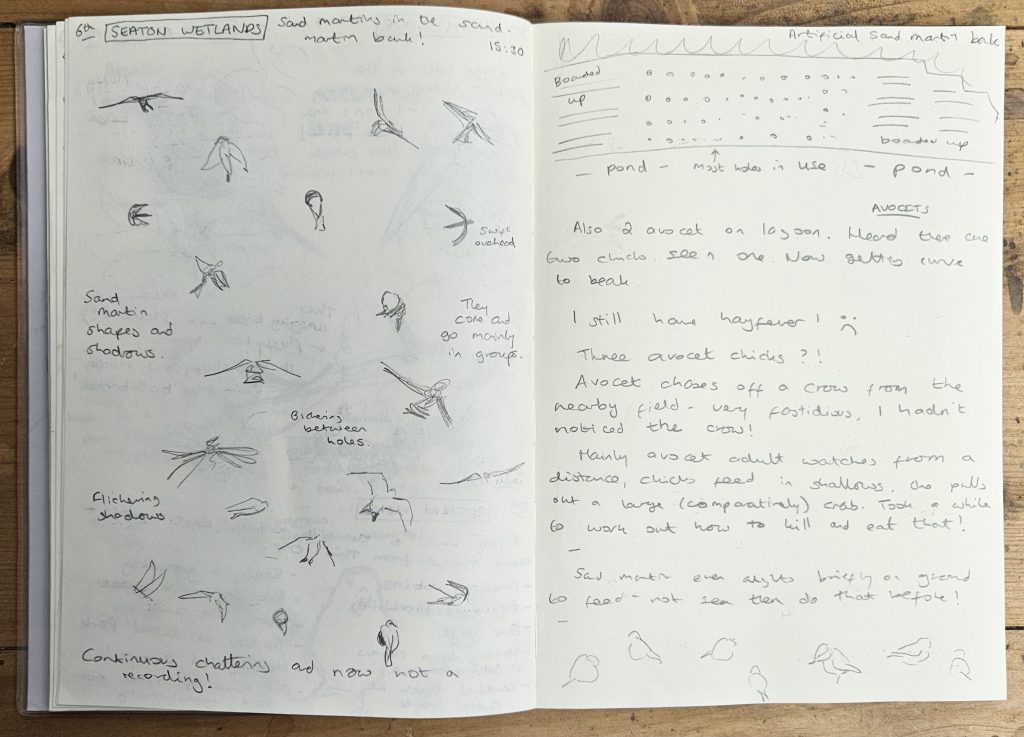 6th SEATON WETLANDS Sand martins in the sand.
martin bank!
15:30
Swift
overhead
Sand
martin
shapes and
shadows.
They
come and
go mainly
in groups.
Bickering
between
holes.
Flickering
shadows
Continuous chattering and now not a
recording!
Artificial Sand martin bank
Boarded
up
boarded up
- pond - Most holes in use - pond -
AVOCETS
Also 2 avocet on lagoon. Heard there are
two chicks. seen one. Now getting curve
to beak.
I still have hayfever!
Three avocet chicks?!
Avocet chases off a crow from the
nearby field - very fastidious, I hadn't
noticed the crow!
Mainly avocet adult watches from a
distance, chicks feed in shallows. One pulls
out a large (comparatively) crab. Took a while
to work out how to kill and eat that!
-
Sand martin even alights briefly on ground
to feed - not seen them do that before!
-